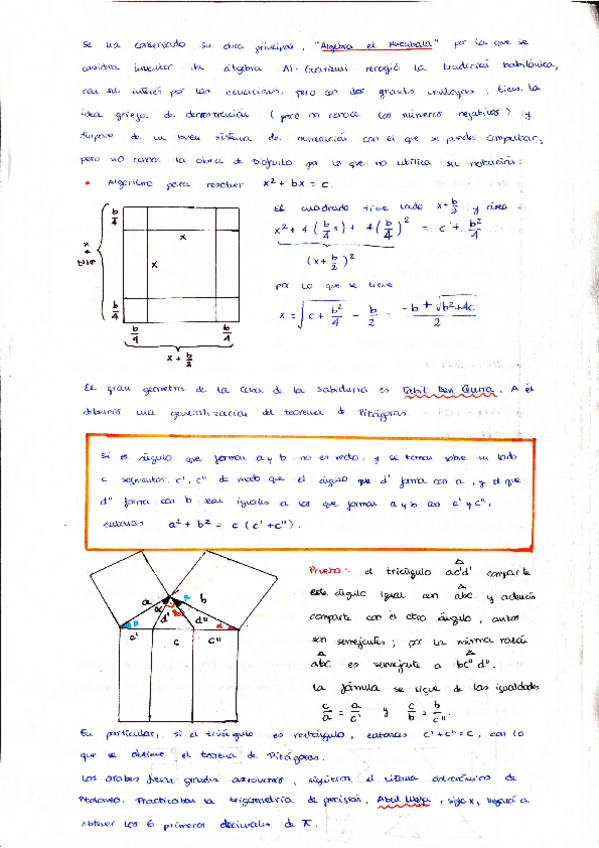 Se ha conservado su obra principal, "Algebra et Mucabala" por la que se
considera inventor del álgebra. Al-Cuarizmi recogió la tradición babilónica,
con su interés por las ecuaciones, pero con dos grandes ventajas: tiene la
idea griega de demostración (pero no conoce los números negativos) y
dispone de un buen sistema de numeración con el que se puede computar,
pero no conoce la obra de Diofanto por lo que no utiliza su notación.
• Algoritmo para resolver x² + bx = c.
El cuadrado tiene lado x + b/2 y área
x² + 4(b/4 x) + 4(b/4)² = c + b²/4
(x + b/2)²
por lo que se tiene
x = √(c + b²/4) - b/2 = (-b + √(b²+4c))/2
b/4
x + b/2
b/4
x
x
b/4
b/4
x + b/2
El gran geómetra de la Casa de la Sabiduría es Tabit Ben Qurra. A él
debemos una generalización del teorema de Pitágoras.
Si el ángulo que forman a y b no es recto, y se toman sobre un lado
c segmentos c', c'' de modo que el ángulo que d' forma con a, y el que
d'' forma con b sean iguales a los que forman a y b con c' y c'',
entonces a² + b² = c (c' + c'').
a
b
d'
d''
c'
c
c''
Prueba: el triángulo ac'd' comparte
este ángulo igual con abc y además
comparte con él otro ángulo, ambos
son semejantes; por la misma razón
abc es semejante a bc''d''.
La fórmula se sigue de las igualdades
c/a = a/c' y c/b = b/c''.
En particular, si el triángulo es rectángulo, entonces c' + c'' = c, con lo
que se obtiene el teorema de Pitágoras.
Los árabes fueron grandes astrónomos, siguieron el sistema astronómico de
Ptolomeo. Practicaban la trigonometría de precisión, Abul Wefa, siglo X, llegará a
obtener los 6 primeros decimales de π.